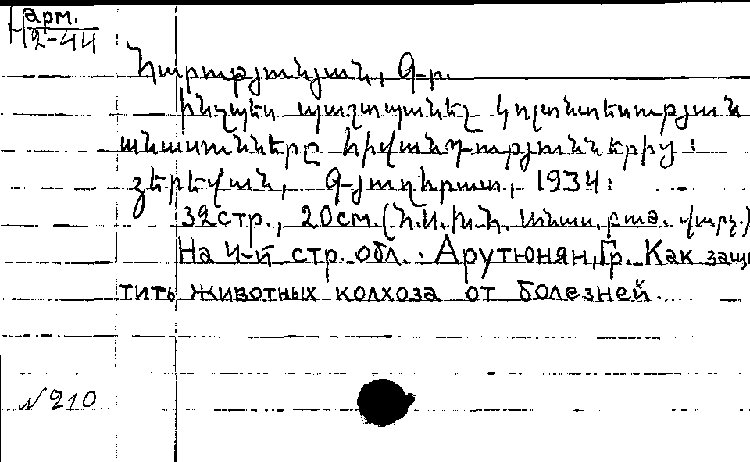 Нарм.
2-44
Հարությունյան, Գ-ր.
Ինչպես պաշտպանել կոլտնտեսության
անասունները հիվանդություններից։
Յերեվան, Գ-յուղհրատ, 1934։
32стр., 20см. (Հ.Ս.Խ.Հ. Անաս. բաժ. վարչ.)
На 4-й стр. обл.: Арутюнян, Гр. Как защи
тить животных колхоза от болезней.
№210